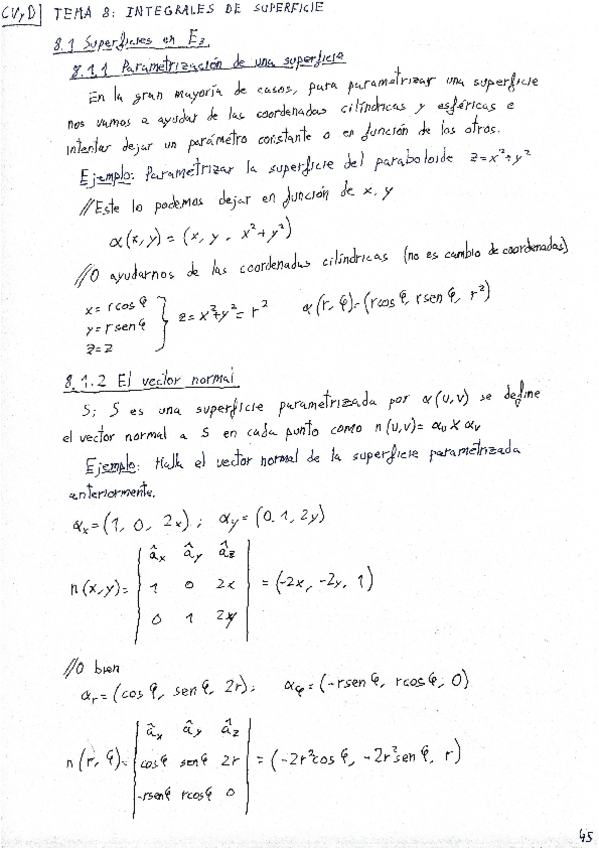 CVyD TEMA 8: INTEGRALES DE SUPERFICIE
8.1 Superficies en E₃
8.1.1 Parametrización de una superficie
En la gran mayoría de casos, para parametrizar una superficie
nos vamos a ayudar de las coordenadas cilíndricas y esféricas e
intentar dejar un parámetro constante o en función de los otros.
Ejemplo: Parametrizar la superficie del paraboloide z=x²+y²
//Este lo podemos dejar en función de x, y
α(x,y)=(x, y, x²+y²)
//O ayudarnos de las coordenadas cilíndricas (no es cambio de coordenadas)
x=rcosφ
y=rsenφ } z=x²+y²=r² α(r,φ)=(rcosφ, rsenφ, r²)
z=z
8.1.2 El vector normal
Si S es una superficie parametrizada por α(u,v) se define
el vector normal a S en cada punto como n(u,v)= αu x αv
Ejemplo: Halla el vector normal de la superficie parametrizada
anteriormente.
αx=(1, 0, 2x); αy=(0,1,2y)
| âx ây âz |
n(x,y)= | 1 0 2x | = (-2x, -2y, 1)
| 0 1 2y |
//O bien
αr=(cosφ, senφ, 2r); αφ=(-rsenφ, rcosφ, 0)
| âx ây âz |
n(r,φ)= | cosφ senφ 2r | = (-2r²cosφ, -2r²senφ, r)
| -rsenφ rcosφ 0 |
45